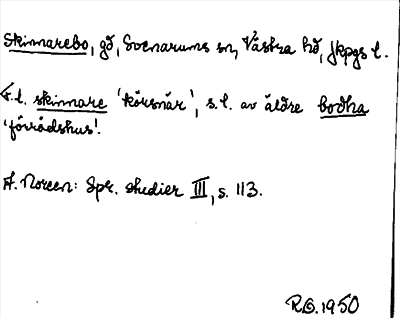 Skinnarebo, gd, Svenarums sn, Västra hd, Jkpgs l.
F.l. skinnare 'körsnär', s.l. av äldre bodha
'förrådshus'.
A. Noreen: Spr. studier III, s. 113.
R.G. 1950